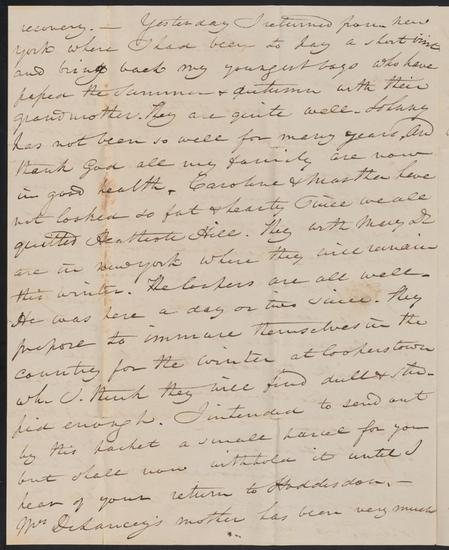 recovery. — Yesterday I returned from New
York where I had been to pay a short visit
and bring back my youngest boys who have
passed the Summer & Autumn with their
grandmother. They are quite well.
has not been so well for many years, And
thank God all my family are now
in good health. Caroline & Martha have
not looked so fat & hearty since we all
quitted Heathcote Hill. They with Mary D.
are in New York where they will remain
this winter. The Coopers are all well.
He was here a day or two since. They
propose to immure themselves in the
country for the winter at Cooperstown
wh. I think they will find dull & stu-
pid enough. I intended to send out
by this packet a small parcel for you
but shall now withhold it until I
hear of your return to Hoddesdon. —
Mrs DeLancey's mother has been very much